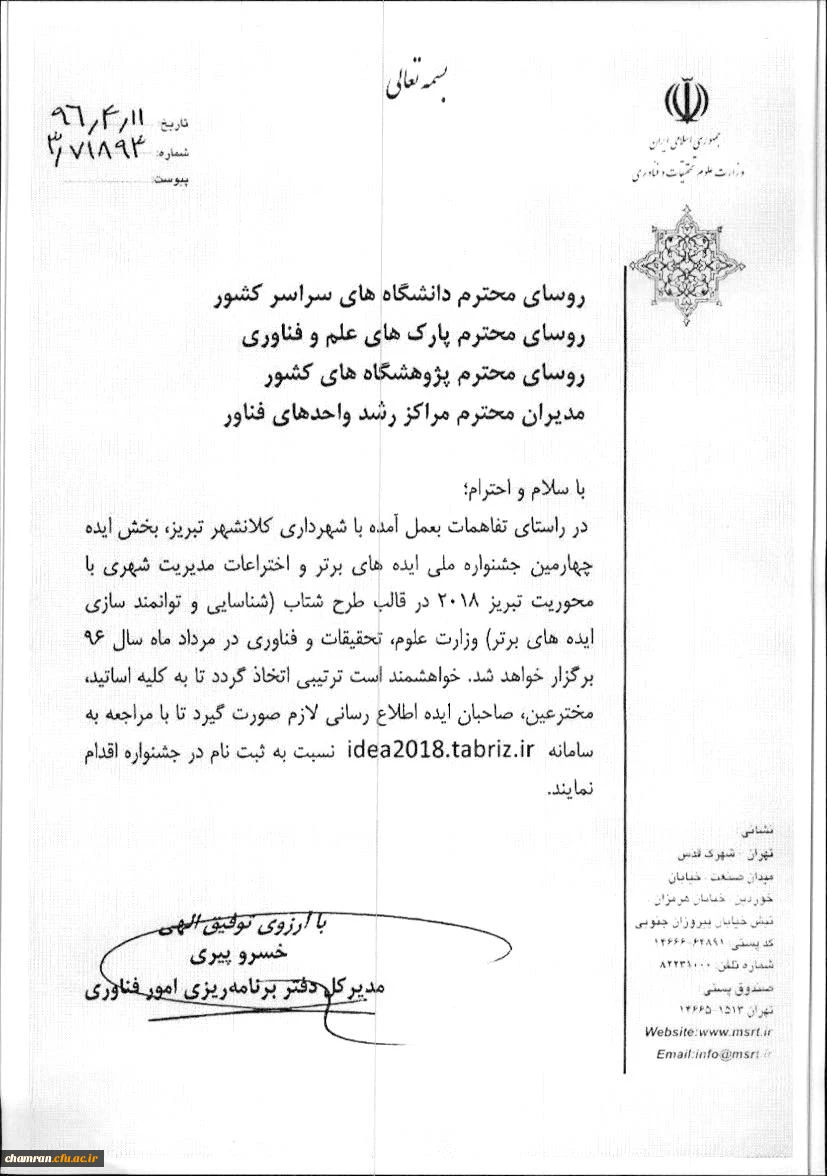 بسمه تعالی
جمهوری اسلامی ایران
وزارت علوم تحقیقات و فناوری
تاریخ: ۹۶٫۴٫۱۱
شماره: ۳٫۷۱۸۹۴
پیوست:
روسای محترم دانشگاه های سراسر کشور
روسای محترم پارک های علم و فناوری
روسای محترم پژوهشگاه های کشور
مدیران محترم مراکز رشد واحدهای فناور
با سلام و احترام؛
در راستای تفاهمات بعمل آمده با شهرداری کلانشهر تبریز، بخش ایده
چهارمین جشنواره ملی ایده های برتر و اختراعات مدیریت شهری با
محوریت تبریز ۲۰۱۸ در قالب طرح شتاب (شناسایی و توانمند سازی
ایده های برتر) وزارت علوم، تحقیقات و فناوری در مرداد ماه سال ۹۶
برگزار خواهد شد. خواهشمند است ترتیبی اتخاذ گردد تا به کلیه اساتید،
مخترعین، صاحبان ایده اطلاع رسانی لازم صورت گیرد تا با مراجعه به
سامانه idea2018.tabriz.ir نسبت به ثبت نام در جشنواره اقدام
نمایند.
با آرزوی توفیق الهی
خسرو پیری
مدیرکل دفتر برنامه‌ریزی امور فناوری
نشانی:
تهران - شهرک قدس
میدان صنعت - خیابان
خوردین - خیابان هرمزان
نبش خیابان پیروزان جنوبی
کد پستی: ۱۴۶۶۶-۶۴۸۹۱
شماره تلفن: ۸۲۲۳۱۰۰۰
صندوق پستی:
تهران ۱۵۱۳-۱۴۶۶۵
Website:www.msrt.ir
Email:info@msrt.ir
chamran.cfu.ac.ir